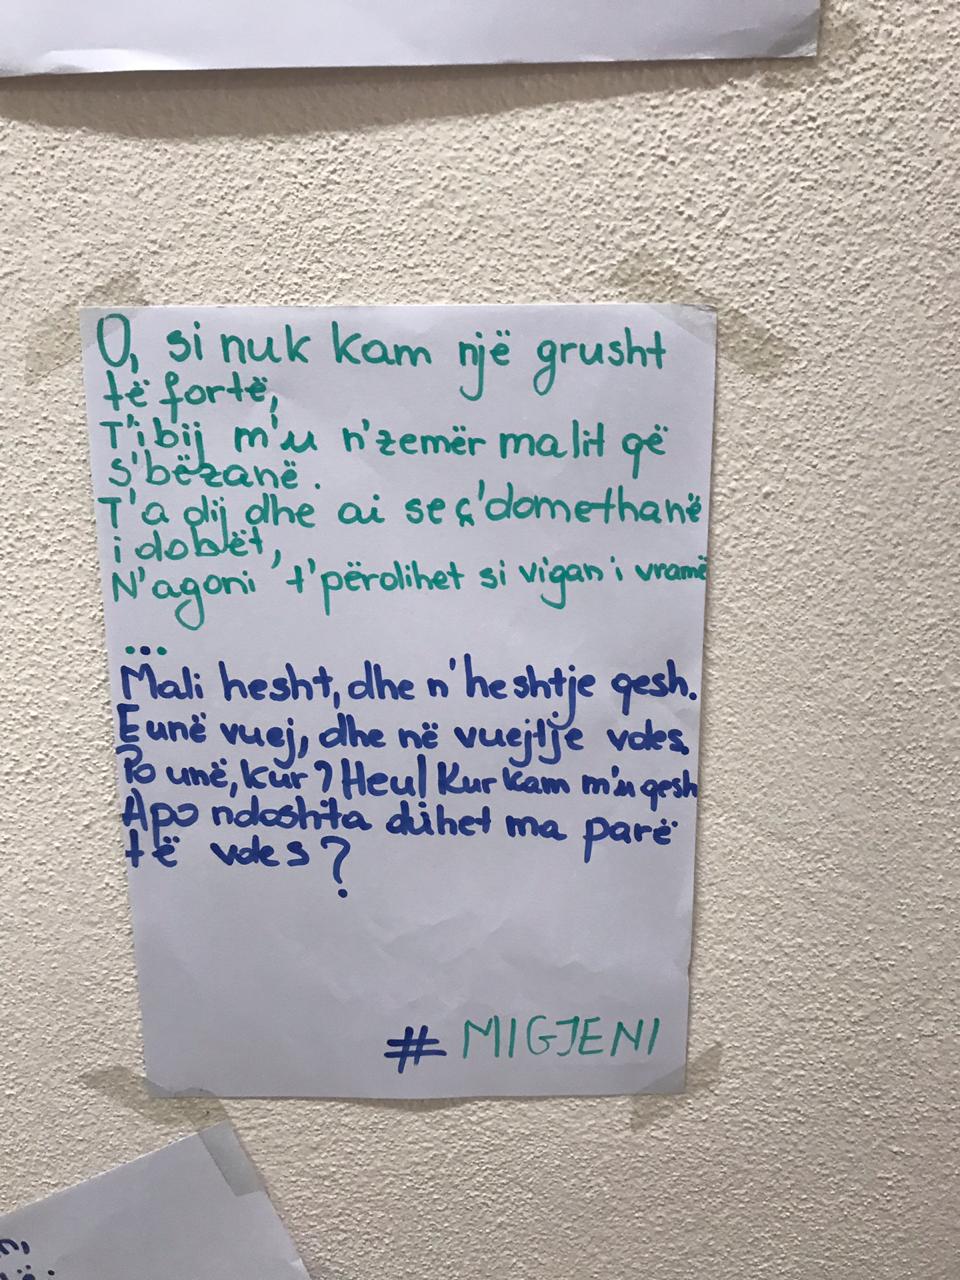 O, si nuk kam një grusht
të fortë,
T'i bij m'u n'zemër malit që
s'bëzanë.
T'a dij dhe ai se ç'domethanë
i dobët,
N'agoni 't'përdlihet si vigan i vramë
...
Mali hesht, dhe n'heshtje qesh.
E unë vuej, dhe në vuejtje vdes.
Po unë, kur? Heu! Kur kam m'u qesh
Apo ndoshta duhet ma parë
të vdes?
# MIGJENI